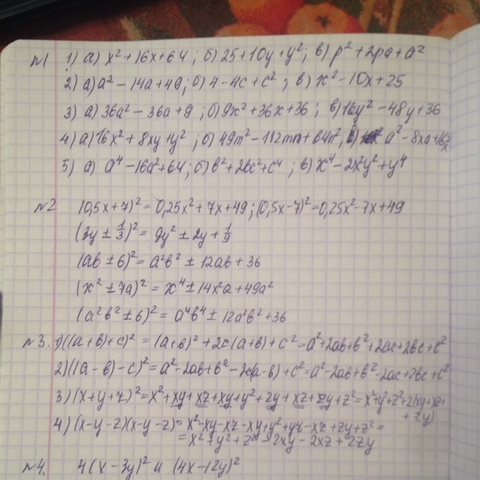 №1 1) а) x²+16x+64; б) 25+10y+y²; в) p²+2pa+a²
2) а) a²-14a+49; б) 4-4c+c²; в) x²-10x+25
3) а) 36a²-36a+9; б) 9x²+36x+36; в) 16y²-48y+36
4) а) 16x²+8xy+y²; б) 49m²-112mn+64n²; в) a²-8xa+16x²
5) а) a⁴-16a²+64; б) b²+2bc²+c⁴; в) x⁴-2x²y²+y⁴
№2 (0,5x+7)²=0,25x²+7x+49; (0,5x-7)²=0,25x²-7x+49
(3y±1/3)²=9y²±2y+1/9
(ab±6)²=a²b²±12ab+36
(x²±7a)²=x⁴±14x²a+49a²
(a²b²±6)²=a⁴b⁴±12a²b²+36
№3. 1) ((a+b)+c)²=(a+b)²+2c(a+b)+c²=a²+2ab+b²+2ac+2bc+c²
2) ((a-b)-c)²=a²-2ab+b²-2c(a-b)+c²=a²-2ab+b²-2ac+2bc+c²
3) (x+y+z)²=x²+xy+xz+xy+y²+zy+xz+zy+z²=x²+y²+z²+2(xy+xz+
+zy)
4) (x-y-z)(x-y-z)=x²-xy-xz-xy+y²+yz-xz+zy+z²=
=x²+y²+z²-2xy-2xz+2zy
№4. 4(x-3y)² и (4x-12y)²